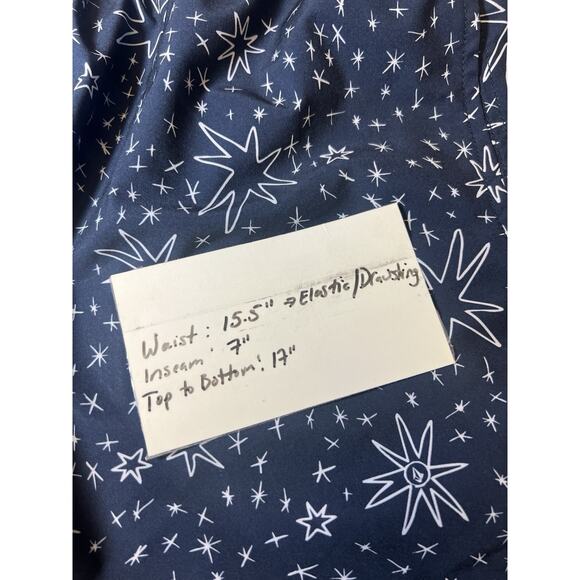 Waist: 15.5" → Elastic/Drawstring
Inseam: 7"
Top to Bottom: 17"